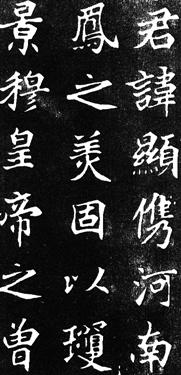 君諱顯儁河南
鳳之美固以瓊
景穆皇帝之曾